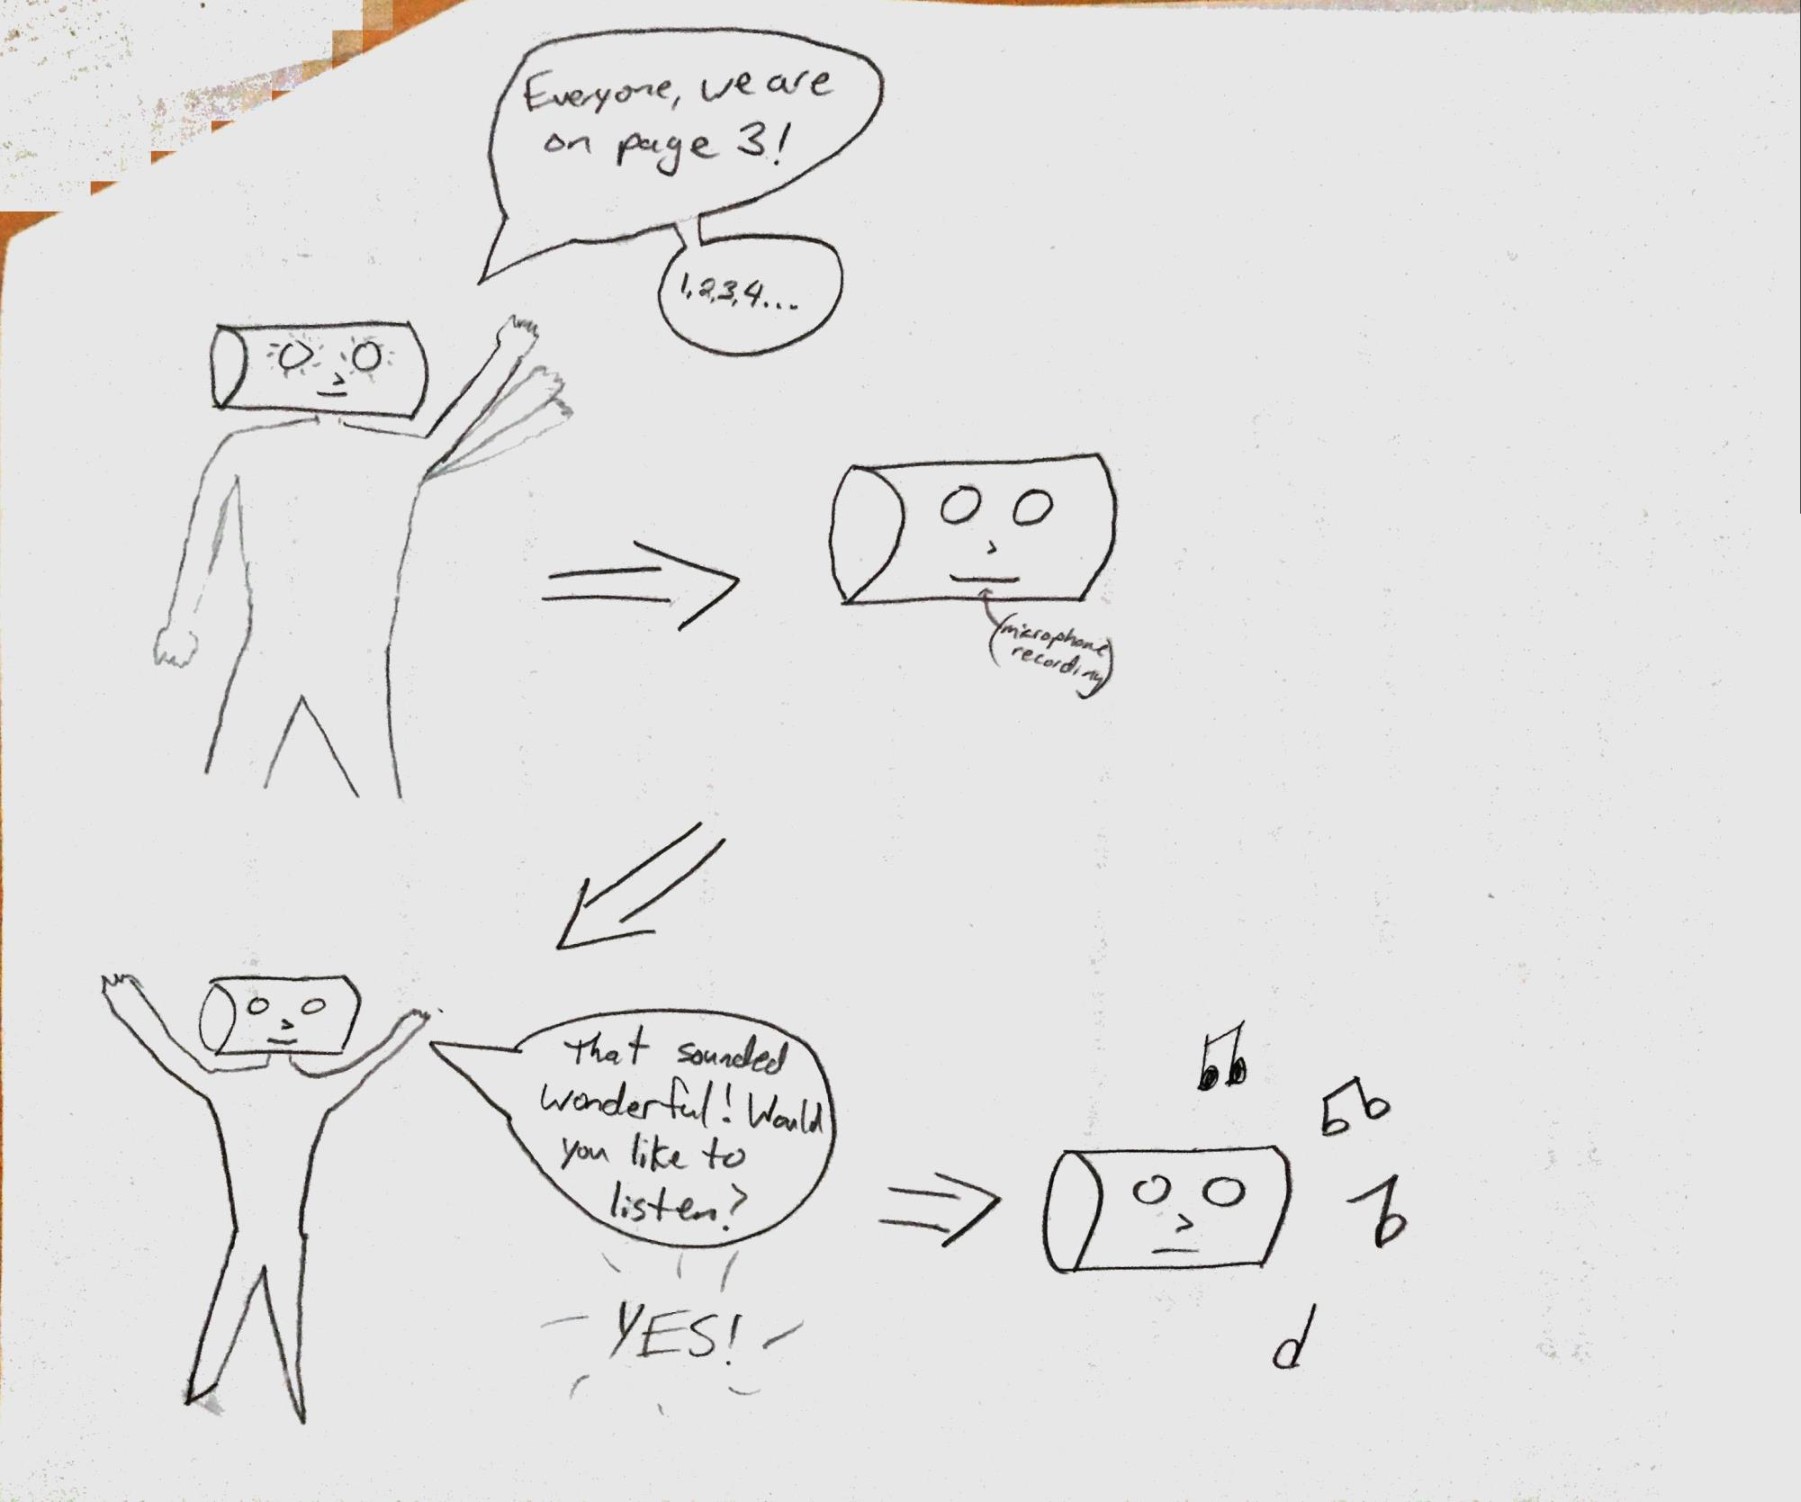 Everyone, we are
on page 3!
1,2,3,4...
(microphone
recording)
That sounded
wonderful! Would
you like to
listen?
YES!